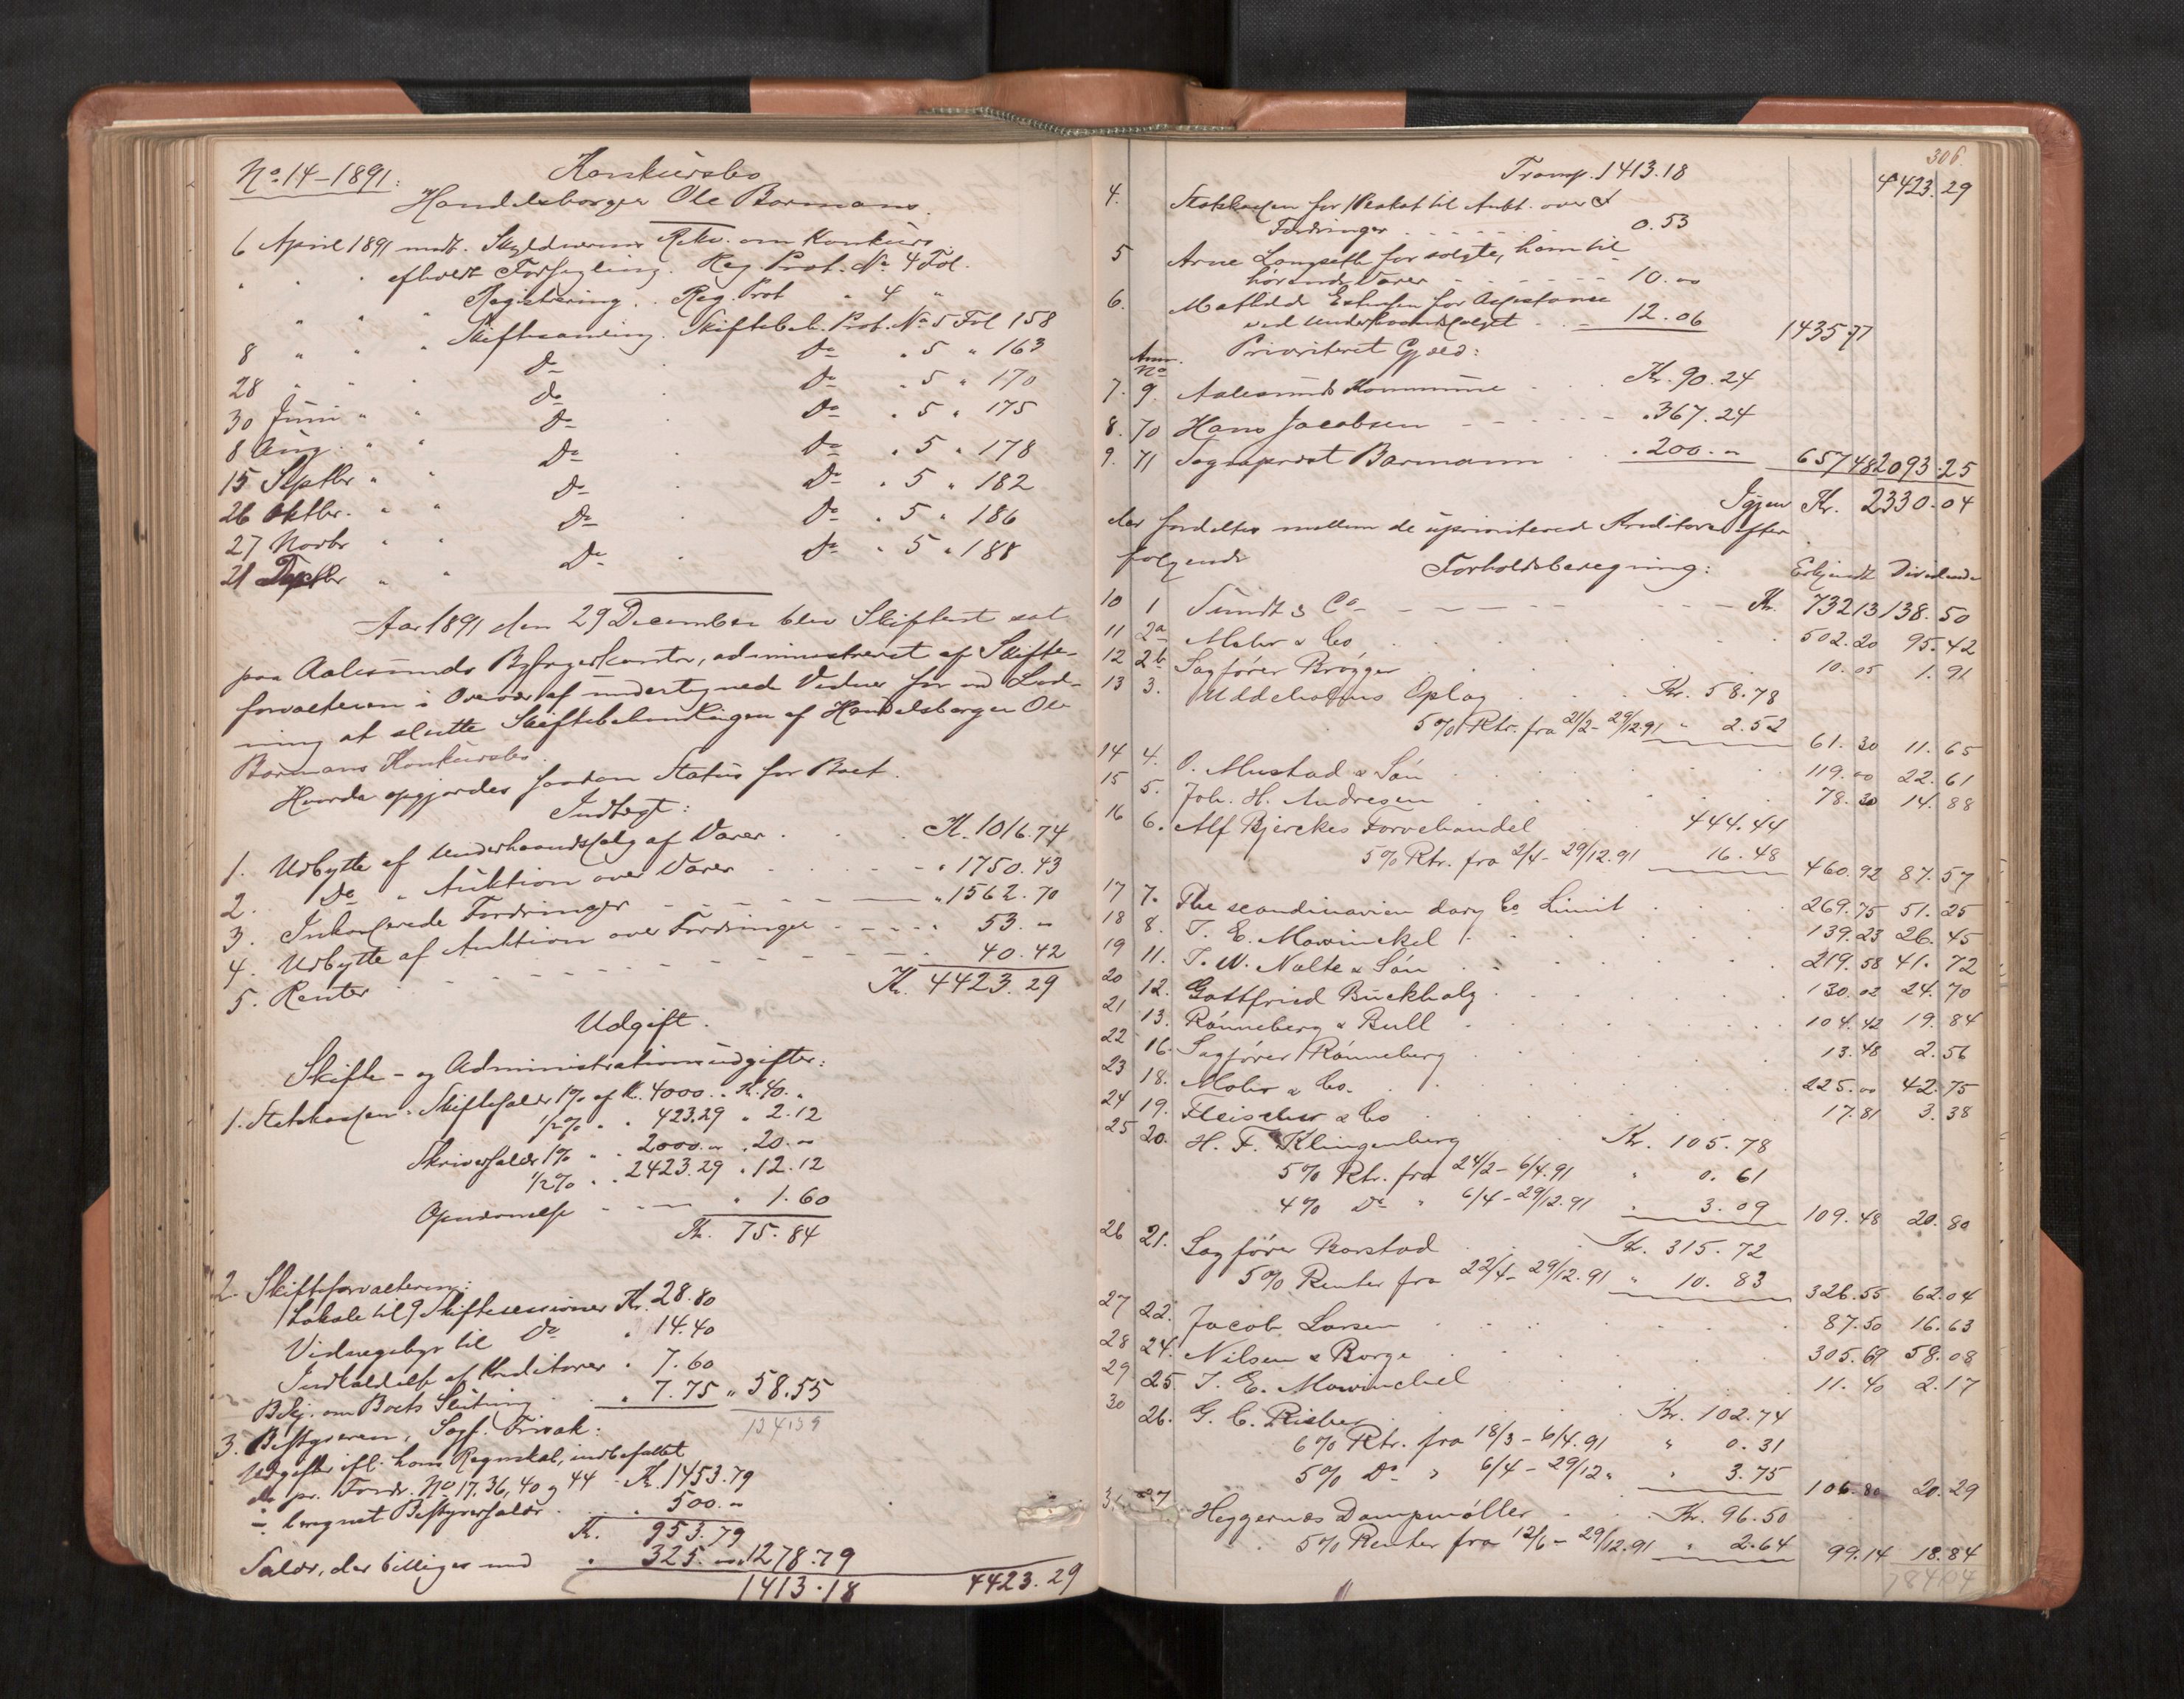 No 14-1891: Konkursbo
Handelsborger Ole Barmans.
6 April 1891 modt. Skyldnerens Rekv. om Konkurs
" " " afholdt Forsegling. Reg. Prot. No 4 Fol.
" " " Registrering. Reg. Prot " 4 "
8 " " " Skiftesamling. Skiftebeh. Prot. No 5 Fol 158
28 " " " Do Do " 5 " 163
30 Juni " " Do Do " 5 " 170
8 Aug. " " Do Do " 5 " 175
15 Septbr " " Do Do " 5 " 178
26 Oktbr. " " Do Do " 5 " 182
27 Novbr " " Do Do " 5 " 186
21 " " Do Do " 5 " 188
Aar 1891 den 29 December blev Skifteret sat
paa Aalesunds Byfogedkontor, administreret af Skifte-
forvalteren i Overvær af undertegnede Vidner for
ning at slutte Skiftebehandlingen af Handelsborger Ole
Barmans Konkursbo.
Hvorda opgjordes saadan Status for Boet.
Indtægt:
1. Udbytte af Underhaandssalg af Varer . . . K. 1016.74
2. Do " Auktion over Varer . . . " 1750.43
3. Inkasserede Fordringer - - - " 1562.70
4. Udbytte af Auktion over Fordringer - - - " 53. "
5. Renter - - - 40.42
Kr. 4423.29
Udgift.
Skifte- og Administrationsudgifter:
1. Statskassen: Skiftesalær 1% af K. 4000. " K. 40. "
1/2% " " 423.29 " 2.12
Skriversalær 1% " " 2000. " " 20. "
1/2% " " 2423.29 " 12.12
- - - " 1.60
Kr. 75.84
2. Skifteforvalteren:
Lokale til 9 Skiftesessioner Kr. 28.80
Vidnegebyr til Do " 14.40
Indkaldelse af Kreditorer " 7.60
Bekj. om Boets Slutning . . " 7.75 " 58.55
134 39
3. Bestyreren, Sagf. Frisak:
Udgifter ifl. hans Regnskab, indbefattet
de pr. Fordr. No 17, 36, 40 og 44 - Kr. 1453.79
÷ beregnet Bestyrersalær . . . 500. "
Kr. 953.79
Salær, der billiges med " 325. " " 1278.79
1413.18 4423.29
306.
Transp. 1413.18 4423.29
4. Statskassen for Plakat til Aukt. over
Fordringer . . . . . 0.53
5 Arne Langseth for solgte, ham til-
hørende Varer - - - - 10. "
6. Mathilde for Assistance
ved Underhaandssalget . . - 12.06 1435 77
Anm. No Prioriteret Gjæld:
7. 9. Aalesunds Kommune . . . Kr. 90.24
8. 70 Hans Jacobsen - - - - " 367.24
9. 71 Sogneprest Barmann . . " 200. " 657 48 2093.25
Igjen Kr. 2330.04
der fordeltes mellem de upriviterede Kreditorer efter
følgende Forholdsberegning: Erkjendt Dividende
10 1 Sundt & Co - - - - Kr. 732 13 138.50
11 2a Mohr & Co . . . 502.20 95.42
12 2b Sagfører Brøgger . . . 10.05 1.91
13 3. Uddeholms Oplag . . . Kr. 58.78
5% Rtr. fra 21/2 - 29/12.91 " 2.52 61.30 11.65
14 4. O. Mustad & Søn . . . 119.00 22.61
15 5. Joh. H. Andresen . . . 78.30 14.88
16 6. Alf Bjerckes Farvehandel 444.44
5% Rtr. fra 2/4 - 29/12.91 16.48 460.92 87.57
17 7. The scandinavien Co Limit . . . 269.75 51.25
18 8. J. E. Mowinckel . . . 139.23 26.45
19 11. J. W. Nolte & Søn . . . 219.58 41.72
20 12. Gottfried Buckholz . . . 130.02 24.70
21 13. Rønneberg & Bull . . . 104.42 19.84
22 16. Sagfører Rønneberg . . . 13.48 2.56
23 18. Mohr & Co. . . . 225.00 42.75
24 19. Fleischer & Co . . . 17.81 3.38
25 20. H. F. Klingenberg Kr. 105.78
5% Rtr. fra 24/2 - 6/4.91 " 0.61
4% Do " 6/4 - 29/12.91 " 3.09 109.48 20.80
26 21. Sagfører Barstad . . . Kr. 315.72
5% Renter fra 22/4 - 29/12.91 " 10.83 326.55 62.04
27 22. Jacob Larsen . . . 87.50 16.63
28 24. Nilsen & Borge . . . 305.69 58.08
29 25. J. E. Mowinckel . . . 11.40 2.17
30 26. G. C. Rieber . . . Kr. 102.74
6% Rtr. fra 18/3 - 6/4.91 " 0.31
5% Do " 6/4 - 29/12 " " 3.75 106.80 20.29
31 27 Heggernes Dampmøller . . . Kr. 96.50
5% Renter fra 12/6 - 29/12.91 " 2.64 99.14 18.84
784 04